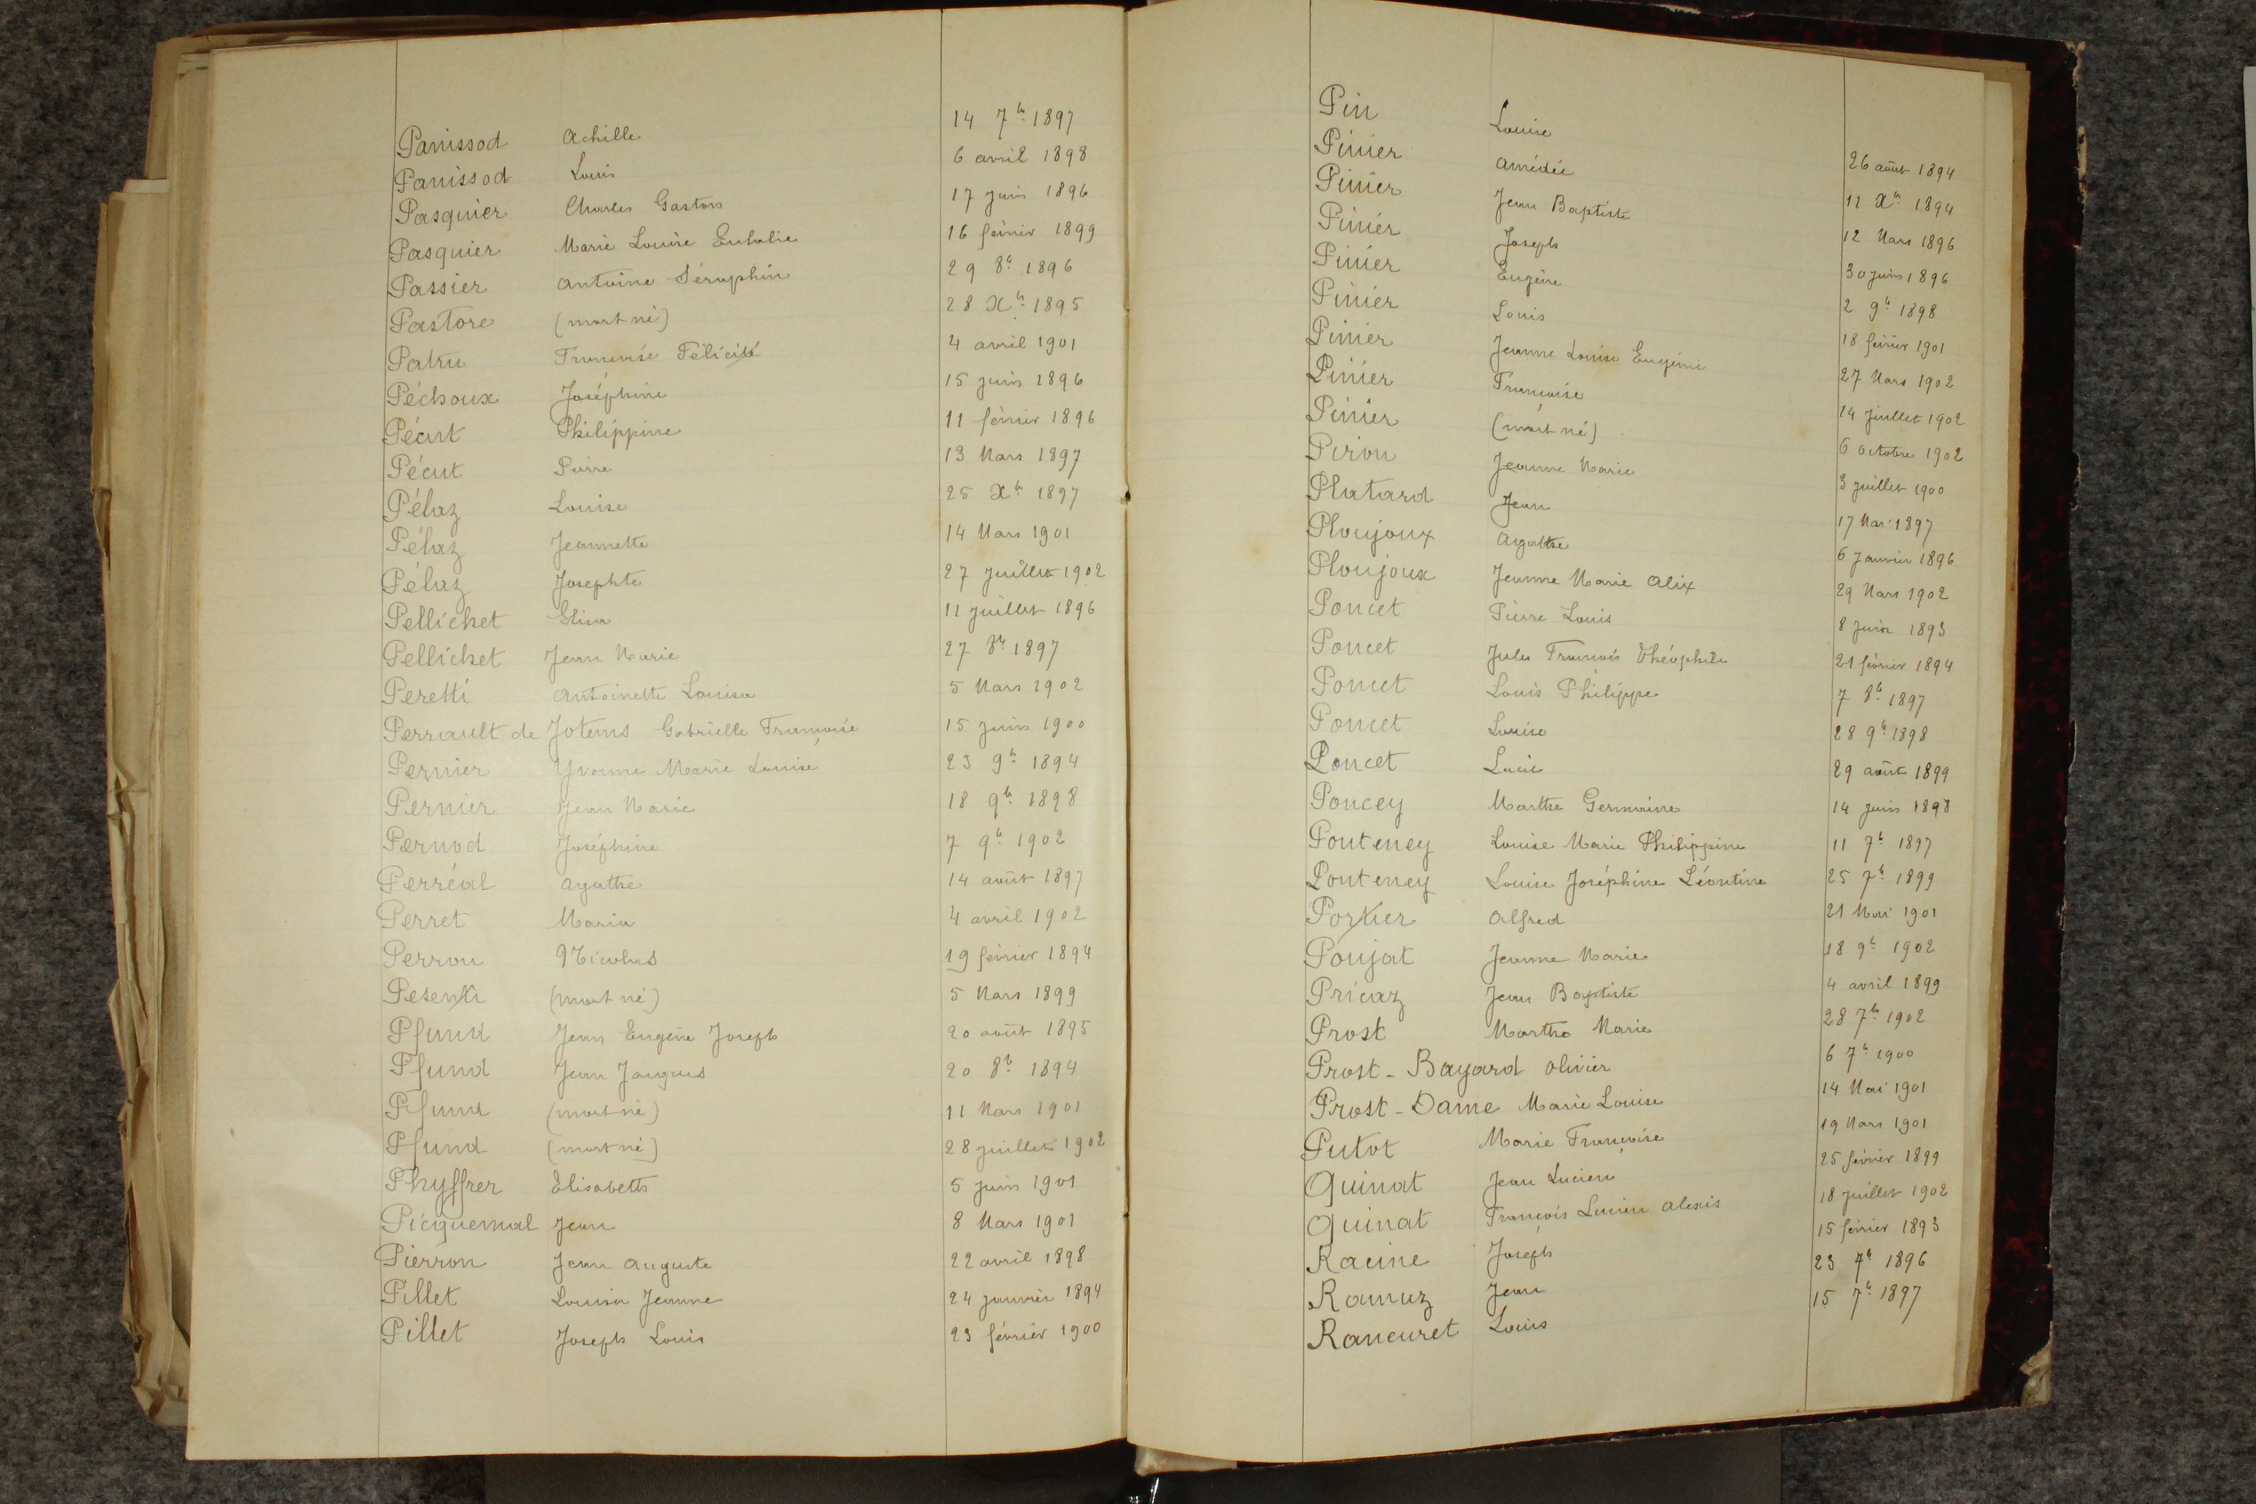 Panissod Achille 14 7b 1897
Panissod Louis 6 avril 1898
Pasquier Charles Gaston 17 juin 1896
Pasquier Marie Louise Eulalie 16 février 1899
Passier Antoine Séraphin 29 8b 1896
Pastore (mort né) 28 Xb 1895
Patru Françoise Félicité 4 avril 1901
Péchoux Joséphine 15 juin 1896
Pécut Philippine 11 février 1896
Pécut Pierre 13 Mars 1897
Pélaz Louise 25 Xb 1897
Pélaz Jeannette 14 Mars 1901
Pélaz Josephte 27 juillet 1902
Pellichet Elisa 11 juillet 1896
Pellichet Jean Marie 27 8b 1897
Peretti Antoinette Louisa 5 Mars 1902
Perrault de Jotems Gabrielle Françoise 15 juin 1900
Pernier Yvonne Marie Louise 23 9b 1894
Pernier Jean Marie 18 9b 1898
Pernod Joséphine 7 9b 1902
Perréal Agathe 14 août 1897
Perret Maria 4 avril 1902
Perrou Nicolas 19 février 1894
Pesenti (mort né) 5 Mars 1899
Pfund Jean Eugène Joseph 20 août 1895
Pfund Jean Jacques 20 8b 1894
Pfund (mort né) 11 Mars 1901
Pfund (mort né) 28 juillet 1902
Phyffrer Elisabeth 5 juin 1901
Picquemal Jean 8 Mars 1901
Pierron Jean Auguste 22 avril 1898
Pillet Louisa Jeanne 24 janvier 1894
Pillet Joseph Louis 23 février 1900
Pin Louise 26 août 1894
Pinier Amédée 11 Xb 1894
Pinier Jean Baptiste 12 Mars 1896
Pinier Joseph 30 juin 1896
Pinier Eugène 2 9b 1898
Pinier Louis 18 février 1901
Pinier Jeanne Louise Eugénie 27 Mars 1902
Pinier Françoise 14 juillet 1902
Pinier (mort né) 6 octobre 1902
Pirou Jeanne Marie 3 juillet 1900
Platard Jean 17 Mai 1897
Ploujoux Agathe 6 janvier 1896
Ploujoux Jeanne Marie Alix 29 Mars 1902
Poncet Pierre Louis 8 juin 1893
Poncet Jules François Théophile 21 février 1894
Poncet Louis Philippe 7 8b 1897
Poncet Louise 28 9b 1898
Poncet Lucie 29 août 1899
Poncey Marthe Germaine 14 juin 1898
Ponteney Louise Marie Philippine 11 7b 1897
Ponteney Louise Joséphine Léontine 25 7b 1899
Portier Alfred 21 Mai 1901
Poujat Jeanne Marie 18 9b 1902
Pricaz Jean Baptiste 4 avril 1899
Prost Martha Marie 28 7b 1902
Prost - Bayard Olivier 6 7b 1900
Prost - Dame Marie Louise 14 Mai 1901
Putot Marie Françoise 19 Mars 1901
Quinat Jean Lucien 25 février 1899
Quinat François Lucien Alexis 18 juillet 1902
Racine Joseph 15 février 1893
Ramuz Jean 23 7b 1896
Rancuret Louis 15 7b 1897